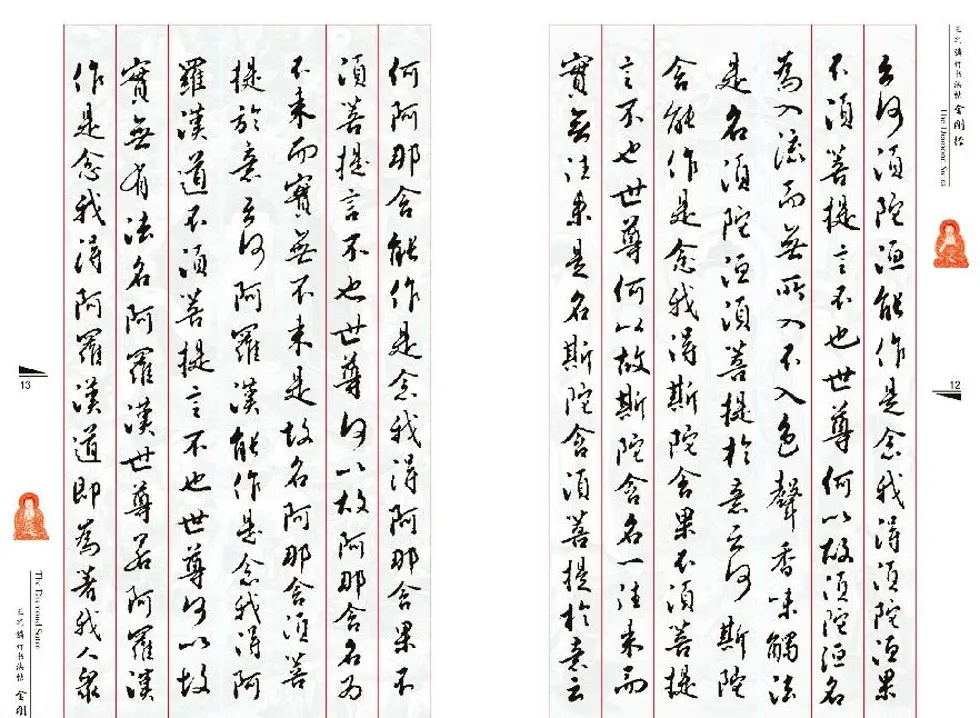 金刚经
The Diamond Sutra
12
云何須陀洹能作是念我得須陀洹果
不須菩提言不也世尊何以故須陀洹名
為入流而無所入不入色聲香味觸法
是名須陀洹須菩提於意云何斯陀
含能作是念我得斯陀含果不須菩提
言不也世尊何以故斯陀含名一往来而
實無往来是名斯陀含須菩提於意云
何阿那含能作是念我得阿那含果不
須菩提言不也世尊何以故阿那含名为
不来而實無不来是故名阿那含須菩
提於意云何阿羅漢能作是念我得阿
羅漢道不須菩提言不也世尊何以故
實無有法名阿羅漢世尊若阿羅漢
作是念我得阿羅漢道即為著我人衆
13
The Diamond Sutra
金刚